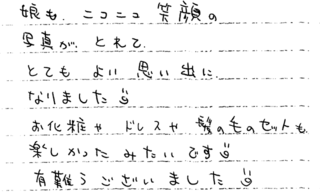 娘も、ニコニコ 笑顔の
写真が、とれて、
とても よい 思い出に
なりました
お化粧や ドレスや 髪の毛のセットも、
楽しかった みたいです
有難うございました